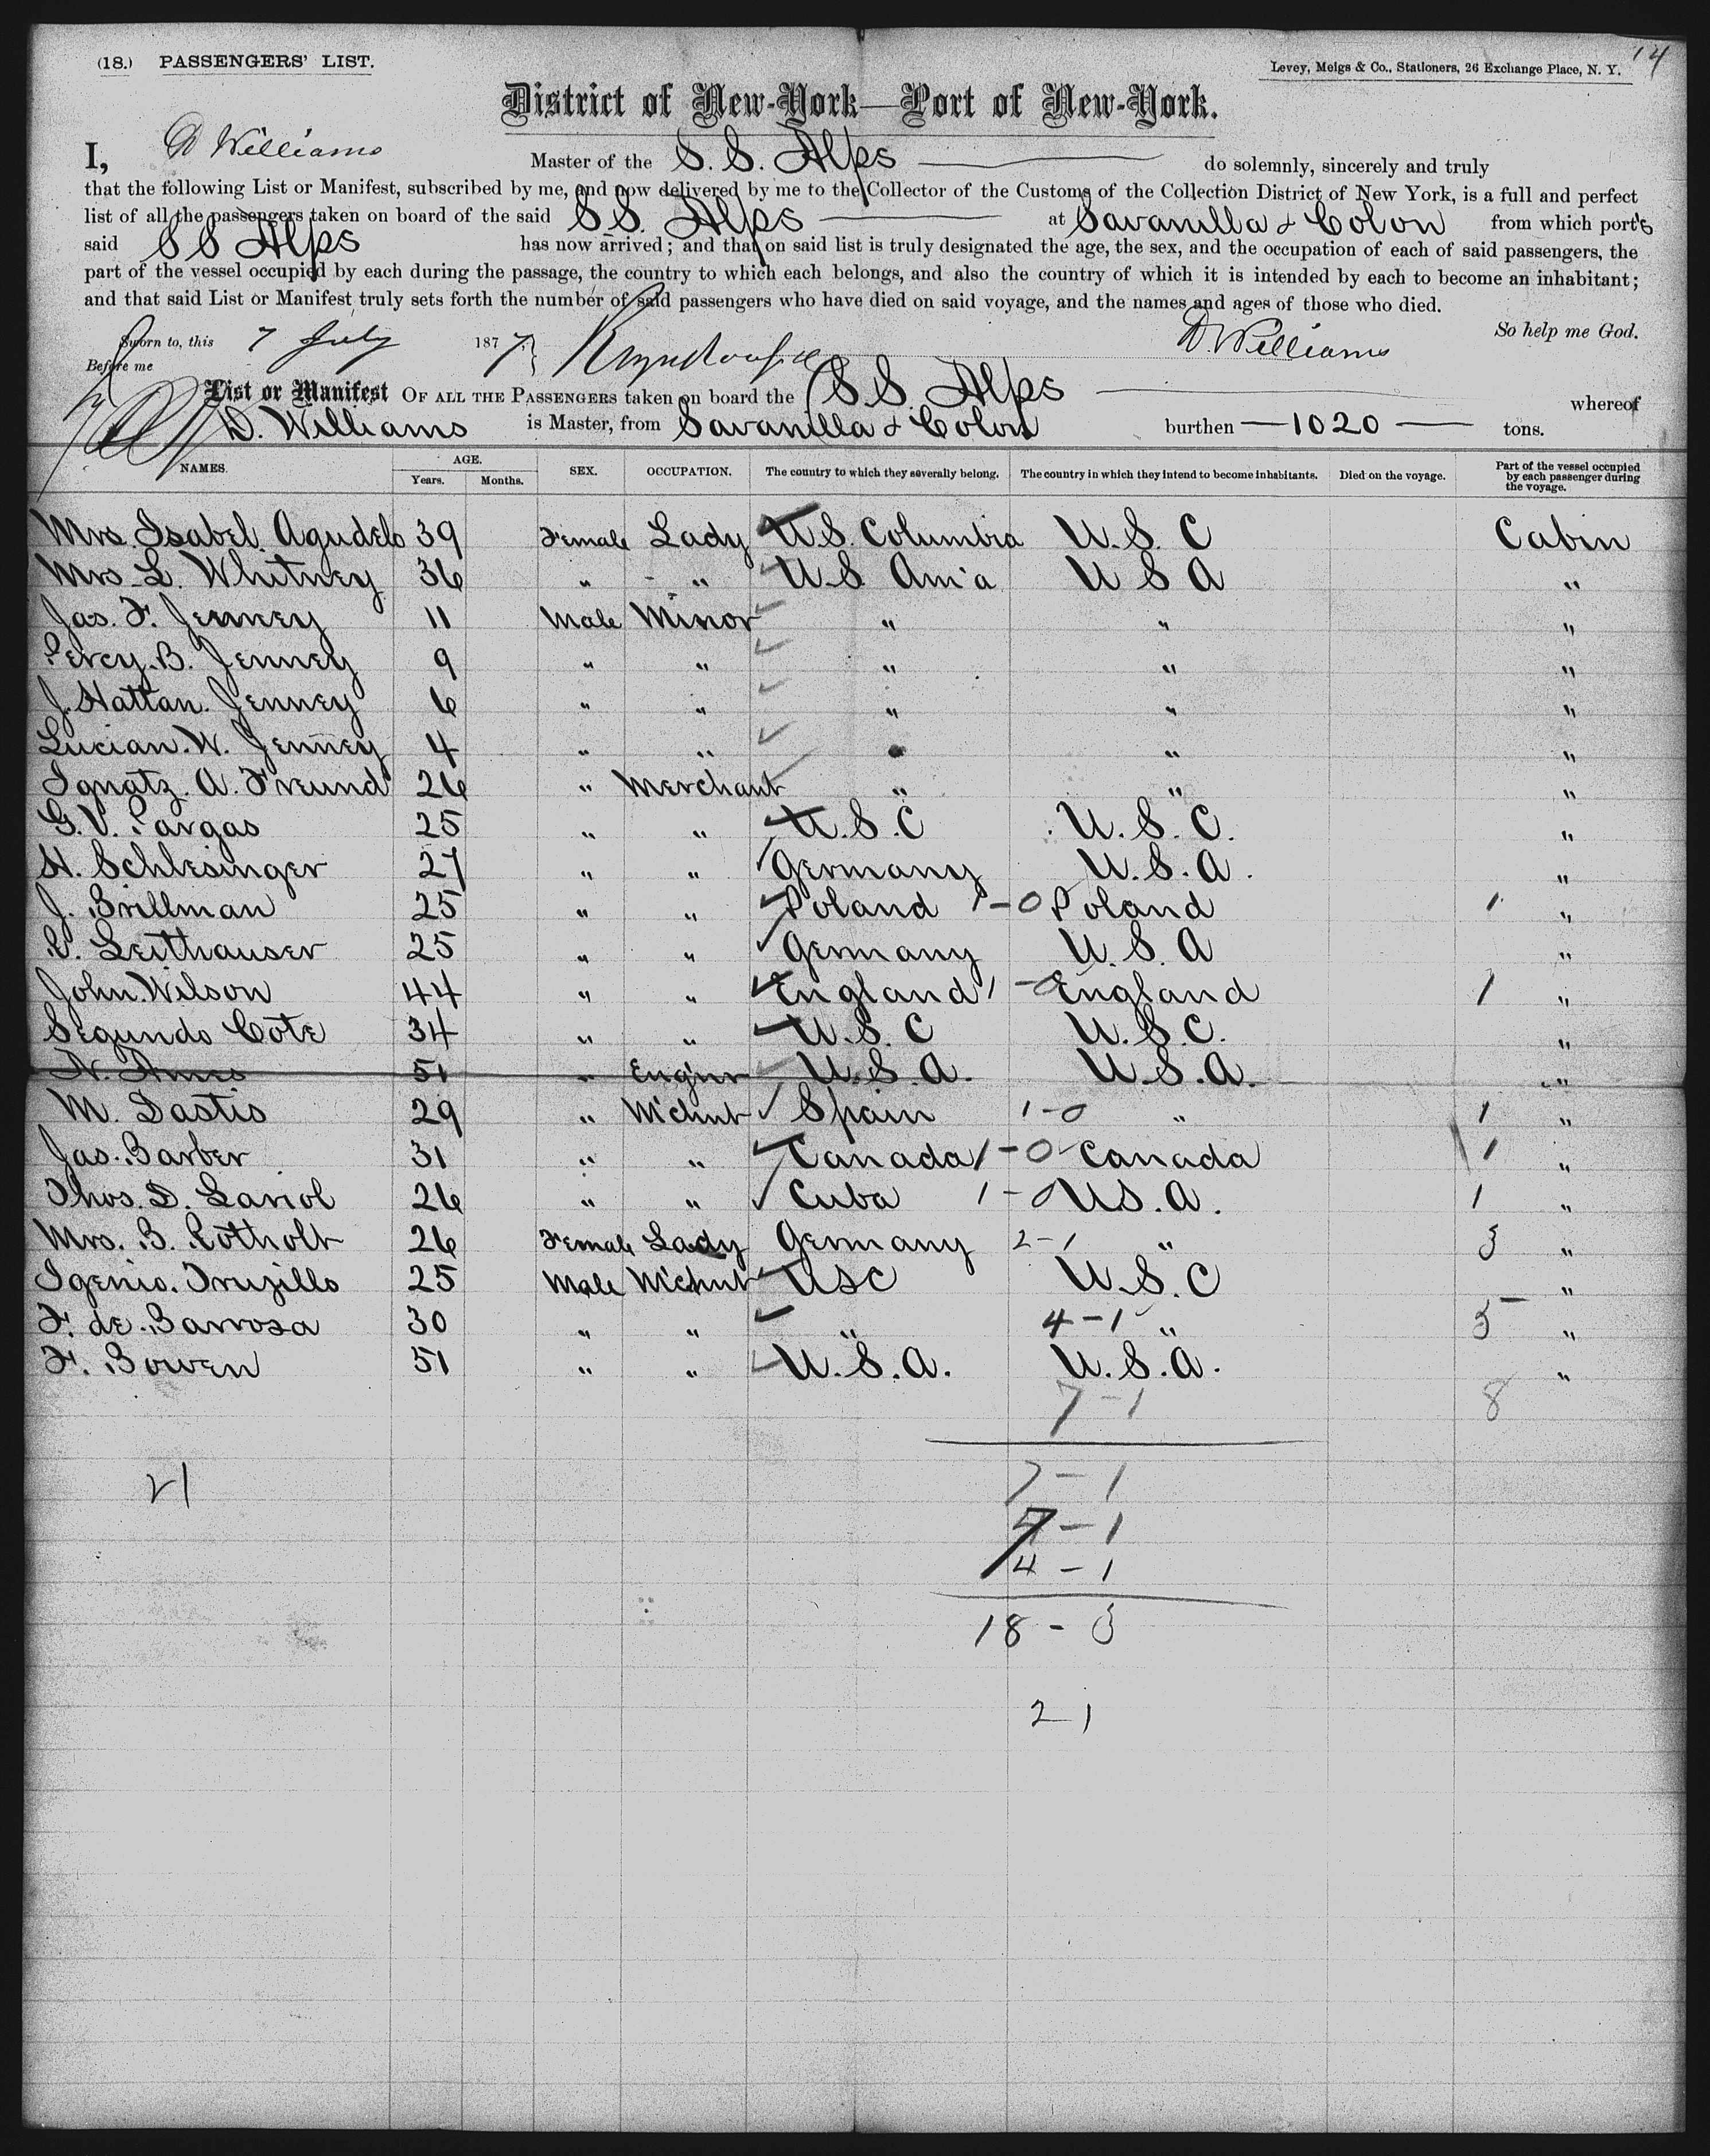 (18.) PASSENGERS' LIST.
Levey, Meigs & Co., Stationers, 26 Exchange Place, N. Y. 14
District of New-York—Port of New-York.
I, D Williams Master of the S. S. Alps do solemnly, sincerely and truly
that the following List or Manifest, subscribed by me, and now delivered by me to the Collector of the Customs of the Collection District of New York, is a full and perfect
list of all the passengers taken on board of the said SS. Alps at Savanilla & Colon from which port's
said SS Alps has now arrived; and that on said list is truly designated the age, the sex, and the occupation of each of said passengers, the
part of the vessel occupied by each during the passage, the country to which each belongs, and also the country of which it is intended by each to become an inhabitant;
and that said List or Manifest truly sets forth the number of said passengers who have died on said voyage, and the names and ages of those who died.
So help me God.
Sworn to, this 7 July 1877 D. Williams
Before me
List or Manifest OF ALL THE PASSENGERS taken on board the S.S. Alps whereof
D. Williams is Master, from Savanilla & Colon burthen — 1020 — tons.
NAMES. AGE. Years. Months. SEX. OCCUPATION. The country to which they severally belong. The country in which they intend to become inhabitants. Died on the voyage. Part of the vessel occupied by each passenger during the voyage.
Mrs. Isabel. Agudelo 39 Female Lady U.S. Columbia U.S. C Cabin
Mrs L. Whitney 36 " " U.S Am'a U S A "
Jas. F. Jenney 11 Male Minor " " "
Percy. B. Jenney 9 " " " " "
J. Hattan. Jenney 6 " " " " "
Lucian. W. Jenney 4 " " " " "
Ignatz. A. Freund 26 " Merchant " " "
G. V. Pargas 25 " " U.S.C U.S.C. "
H. Schlesinger 27 " " Germany U.S.A. "
J. Brillman 25 " " Poland 1-0 Poland 1 "
Leithauser 25 " " Germany U.S.A "
John. Wilson 44 " " England 1-0 England 1 "
Segundo Cote 34 " " U.S.C U.S.C. "
51 " Engin'r U.S.A. U.S.A. "
M. Dastis 29 " M'chnt Spain 1-0 " 1 "
Jas. Barber 31 " " Canada 1-0 Canada 1 "
Thos. D. Lariol 26 " " Cuba 1-0 US.A. 1 "
Mrs. B. Rotholt 26 Female Lady Germany 2-1 " 3 "
Igenio. Trujillo 25 Male M'chnt USC U.S.C "
F. de. Barrosa 30 " " " 4-1 " 5 "
F. Bowen 51 " " U.S.A. U.S.A. "
7-1 8
21 7-1
7-1
4-1
18-3
21